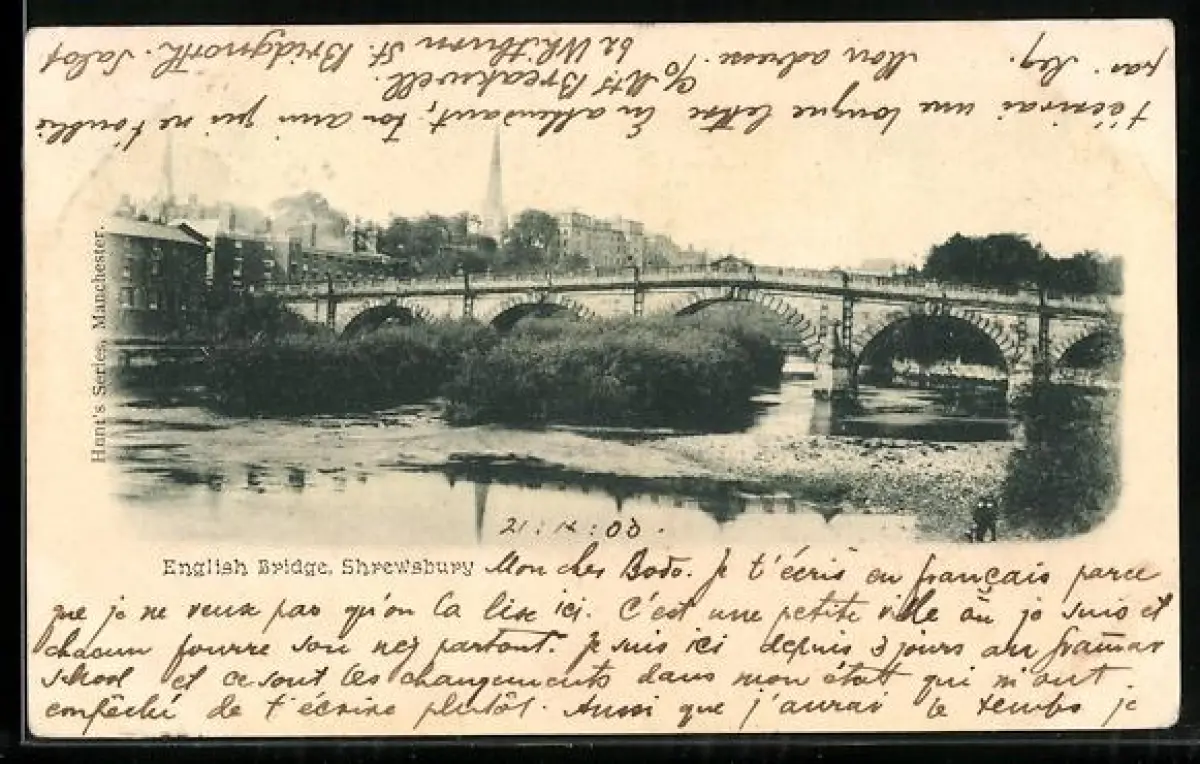 Hunt's Series, Manchester.
21 : IX : 00.
English Bridge, Shrewsbury
Mon cher Bodo. Je t'écris en français parce
que je ne veux pas qu'on la lise ici. C'est une petite ville où je suis et
chacun fourre son nez partout. Je suis ici depuis 3 jours au Gramar
School et ce sont les changements dans mon état qui m'ont
empêché de t'écrire plutôt. Aussi que j'aurai le temps je
t'écrirai une longue lettre En attendant, ton ami qui ne t'oublie
pas. Reg. Mon adresse. c/o Mrs Breakwell.
62 Whitburn St. Bridgnorth. Salop